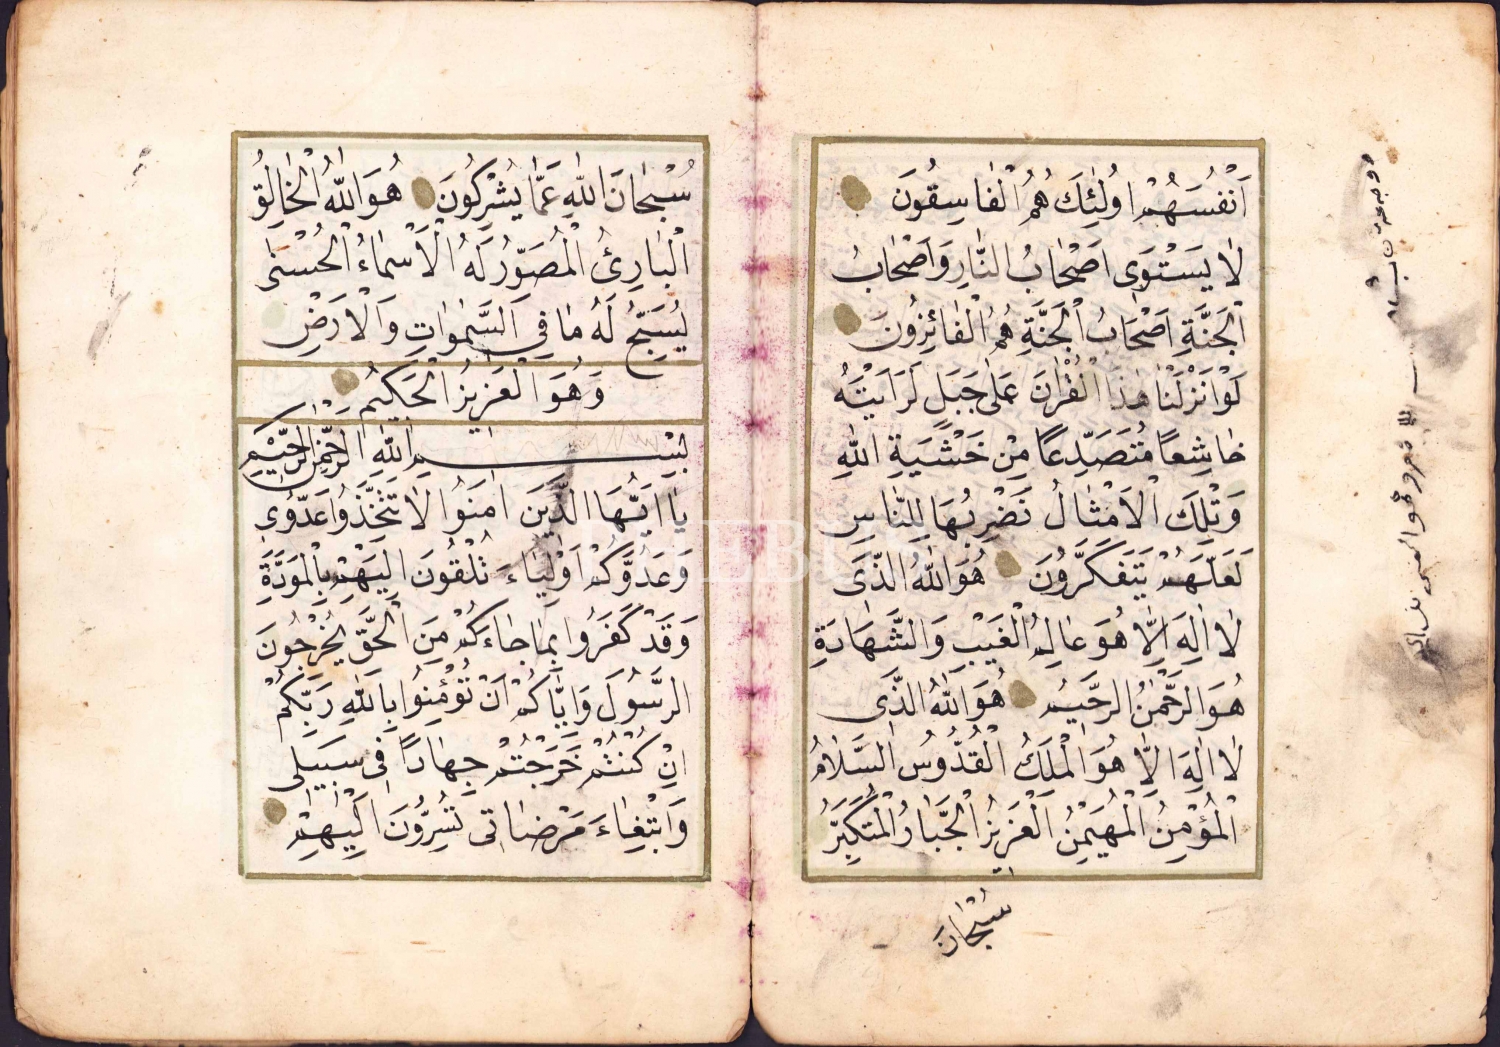 اَنْفُسَهُمْ اُولٰئِكَ هُمُ الْفَاسِقُونَ
لَا يَسْتَوِى اَصْحَابُ النَّارِ وَاَصْحَابُ
الْجَنَّةِ اَصْحَابُ الْجَنَّةِ هُمُ الْفَائِزُونَ
لَوْ اَنْزَلْنَا هٰذَا الْقُرْاٰنَ عَلٰى جَبَلٍ لَرَاَيْتَهُ
خَاشِعًا مُتَصَدِّعًا مِنْ خَشْيَةِ اللّٰهِ
وَتِلْكَ الْاَمْثَالُ نَضْرِبُهَا لِلنَّاسِ
لَعَلَّهُمْ يَتَفَكَّرُونَ هُوَ اللّٰهُ الَّذِى
لَا اِلٰهَ اِلَّا هُوَ عَالِمُ الْغَيْبِ وَالشَّهَادَةِ
هُوَ الرَّحْمٰنُ الرَّحِيمُ هُوَ اللّٰهُ الَّذِى
لَا اِلٰهَ اِلَّا هُوَ الْمَلِكُ الْقُدُّوسُ السَّلَامُ
الْمُؤْمِنُ الْمُهَيْمِنُ الْعَزِيزُ الْجَبَّارُ الْمُتَكَبِّرُ
سُبْحَانَ
سُبْحَانَ اللّٰهِ عَمَّا يُشْرِكُونَ هُوَ اللّٰهُ الْخَالِقُ
الْبَارِئُ الْمُصَوِّرُ لَهُ الْاَسْمَاءُ الْحُسْنٰى
يُسَبِّحُ لَهُ مَا فِى السَّمٰوَاتِ وَالْاَرْضِ
وَهُوَ الْعَزِيزُ الْحَكِيمُ
بِسْمِ اللّٰهِ الرَّحْمٰنِ الرَّحِيْمِ
يَا اَيُّهَا الَّذِينَ اٰمَنُوا لَا تَتَّخِذُوا عَدُوِّى
وَعَدُوَّكُمْ اَوْلِيَاءَ تُلْقُونَ اِلَيْهِمْ بِالْمَوَدَّةِ
وَقَدْ كَفَرُوا بِمَا جَاءَكُمْ مِنَ الْحَقِّ يُخْرِجُونَ
الرَّسُولَ وَاِيَّاكُمْ اَنْ تُؤْمِنُوا بِاللّٰهِ رَبِّكُمْ
اِنْ كُنْتُمْ خَرَجْتُمْ جِهَادًا فِى سَبِيلِى
وَابْتِغَاءَ مَرْضَاتِى تُسِرُّونَ اِلَيْهِمْ